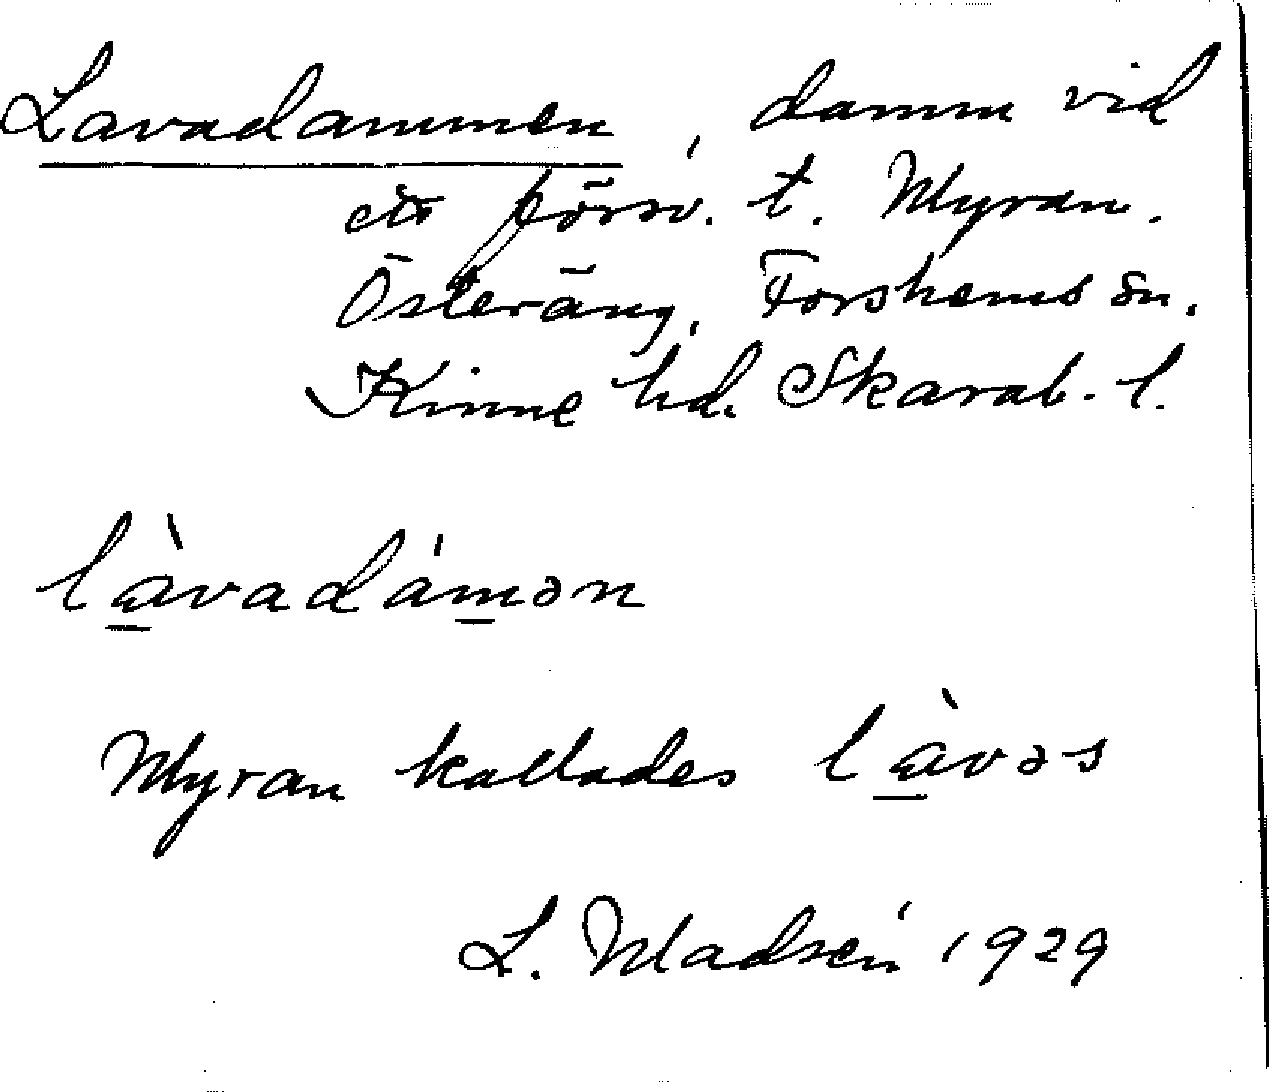 Lavadammen, damm vid
ett försv. t. Myran.
Österäng, Forshems sn.
Kinne hd. Skarab. l.
là̱vadám̱ən
Myran kallades là̱vəs
L. Madsén 1929